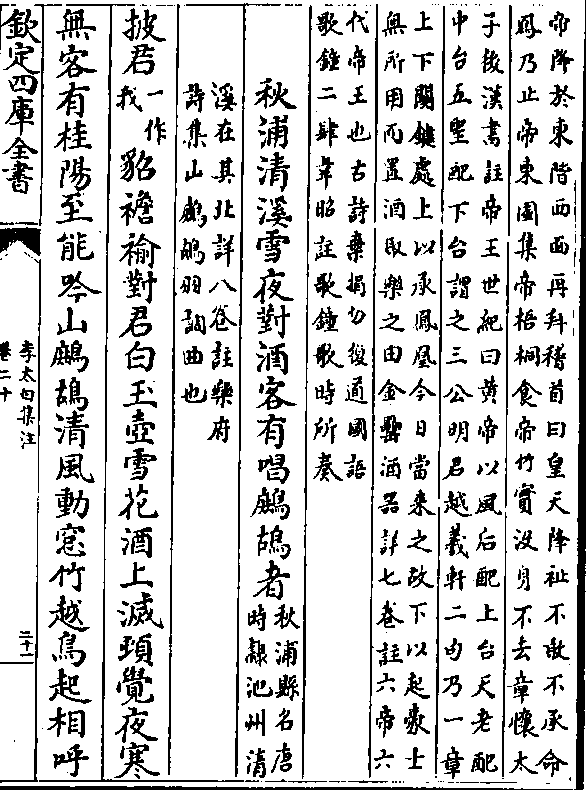 帝降於東階西面再拜稽首曰皇天降祉不敢不承命
鳳乃止帝東園集帝梧桐食帝竹實沒身不去章懷太
子後漢書註帝王世紀曰黃帝以風后配上台天老配
中台五聖配下台謂之三公明君越羲軒二句乃一章
上下關鍵處上以承鳳凰今日當来之故下以起豪士
無所用而置酒取樂之由金罍酒器詳七卷註六帝六
代帝王也古詩棄捐勿復道國語
歌鐘二肆韋昭註歌鐘歌時所奏
秋浦清溪雪夜對酒客有唱鷓鴣者
秋浦縣名唐
時隷池州清
溪在其北詳八卷註樂府
詩集山鷓鴣羽調曲也
披君
一作
我
貂襜褕對君白玉壺雪花酒上滅頊覺夜寒
無客有桂陽至能吟山鷓鴣清風動窓竹越鳥起相呼
欽定四庫全書
李太白集注
卷二十
二十一